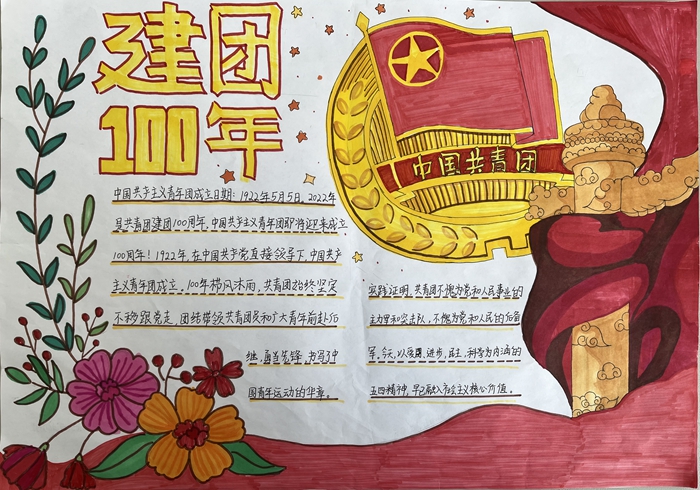 建团
100年
中国共青团
中国共产主义青年团成立日期：1922年5月5日，2022年
是共青团建团100周年，中国共产主义青年团即将迎来成立
100周年！1922年，在中国共产党直接领导下，中国共产
主义青年团成立，100年栉风沐雨，共青团始终坚定
不移跟党走，团结带领共青团员和广大青年前赴后
继，勇当先锋，书写了中
国青年运动的华章。
实践证明，共青团不愧为党和人民事业的
主力军和突击队，不愧为党和人民的后备
军。今天，以爱国，进步，民主，科学为内涵的
五四精神，早已融入社会主义核心价值。